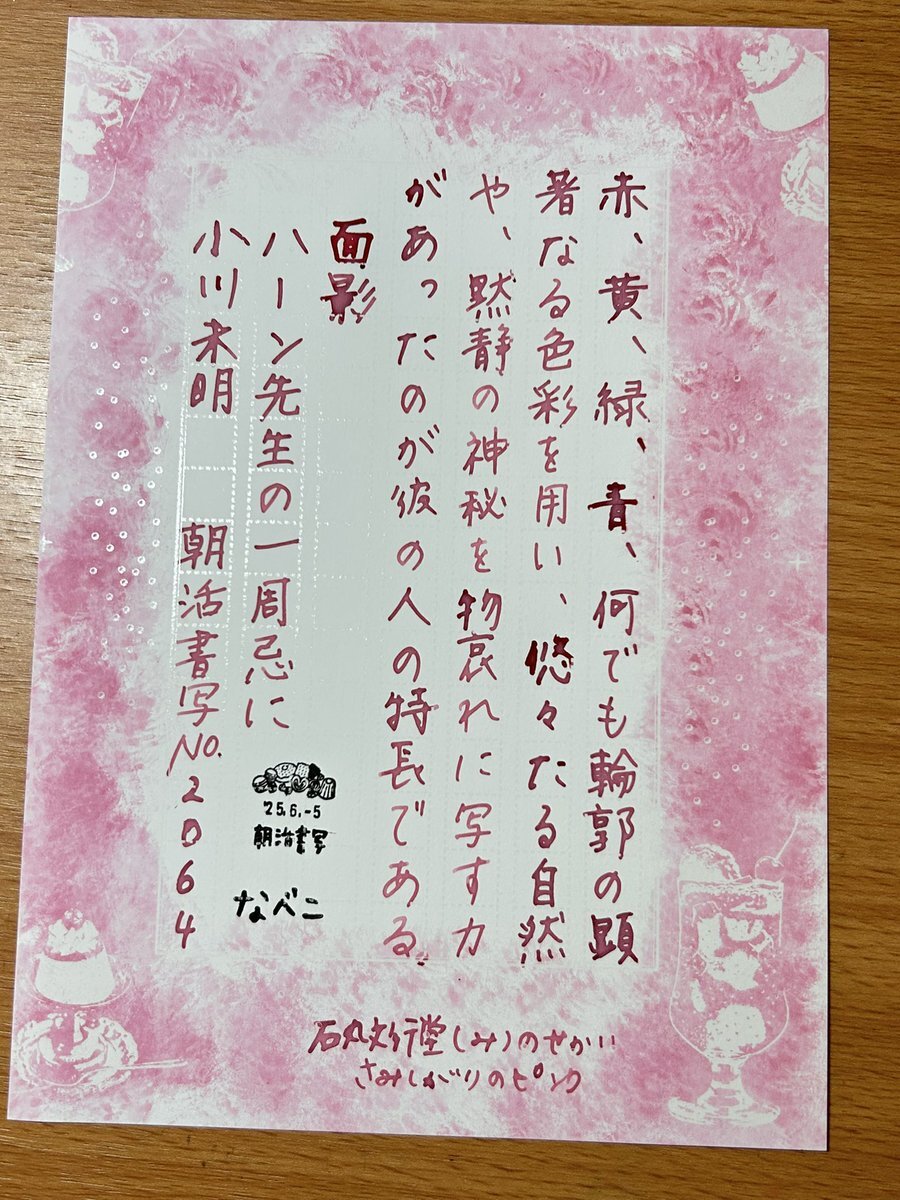 赤、黄、緑、青、何でも輪郭の顕
著なる色彩を用い、悠々たる自然
や、黙静の神秘を物哀れに写す力
があったのが彼の人の特長である。
面影
ハーン先生の一周忌に
小川未明 朝活書写No.2064
'25.6.-5
朝活書写
なべこ
石丸文行堂(しみ)のせかい
さみしがりのピンク